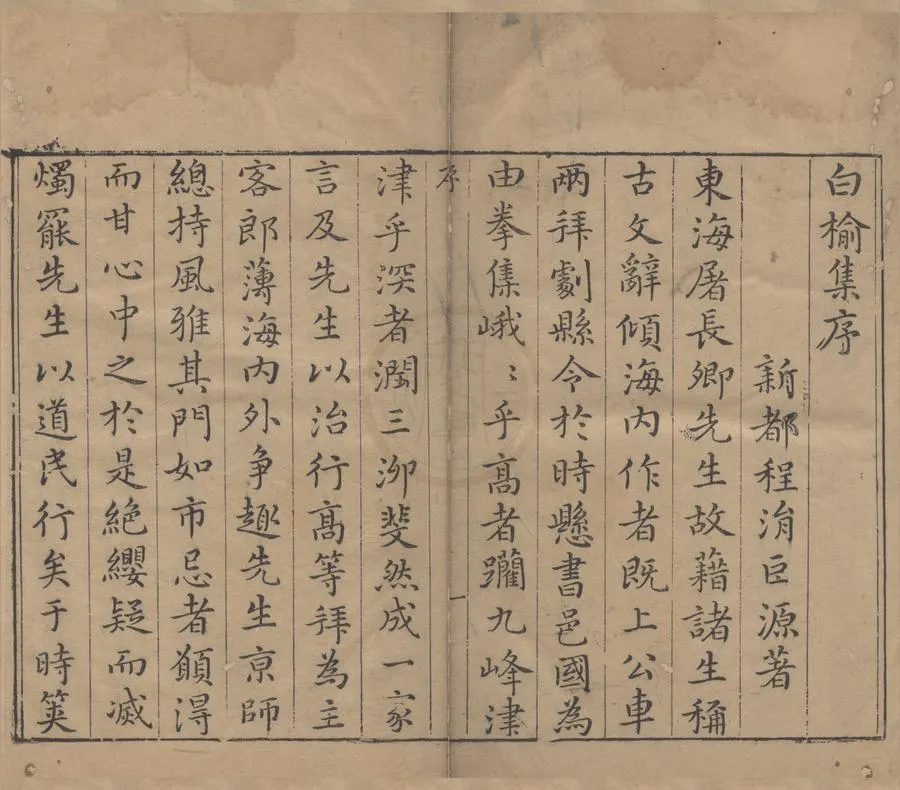 白榆集序
新都程涓巨源著
東海屠長卿先生故藉諸生稱
古文辭傾海内作者既上公車
兩拜劇縣令於時懸書邑國為
由拳集峨〻乎高者躪九峰津
序 一
津乎深者濶三泖斐然成一家
言及先生以治行高等拜為主
客郎薄海内外争趣先生京師
總持風雅其門如市忌者顛得
而甘心中之於是絶纓疑而滅
燭罷先生以道民行矣于時筴